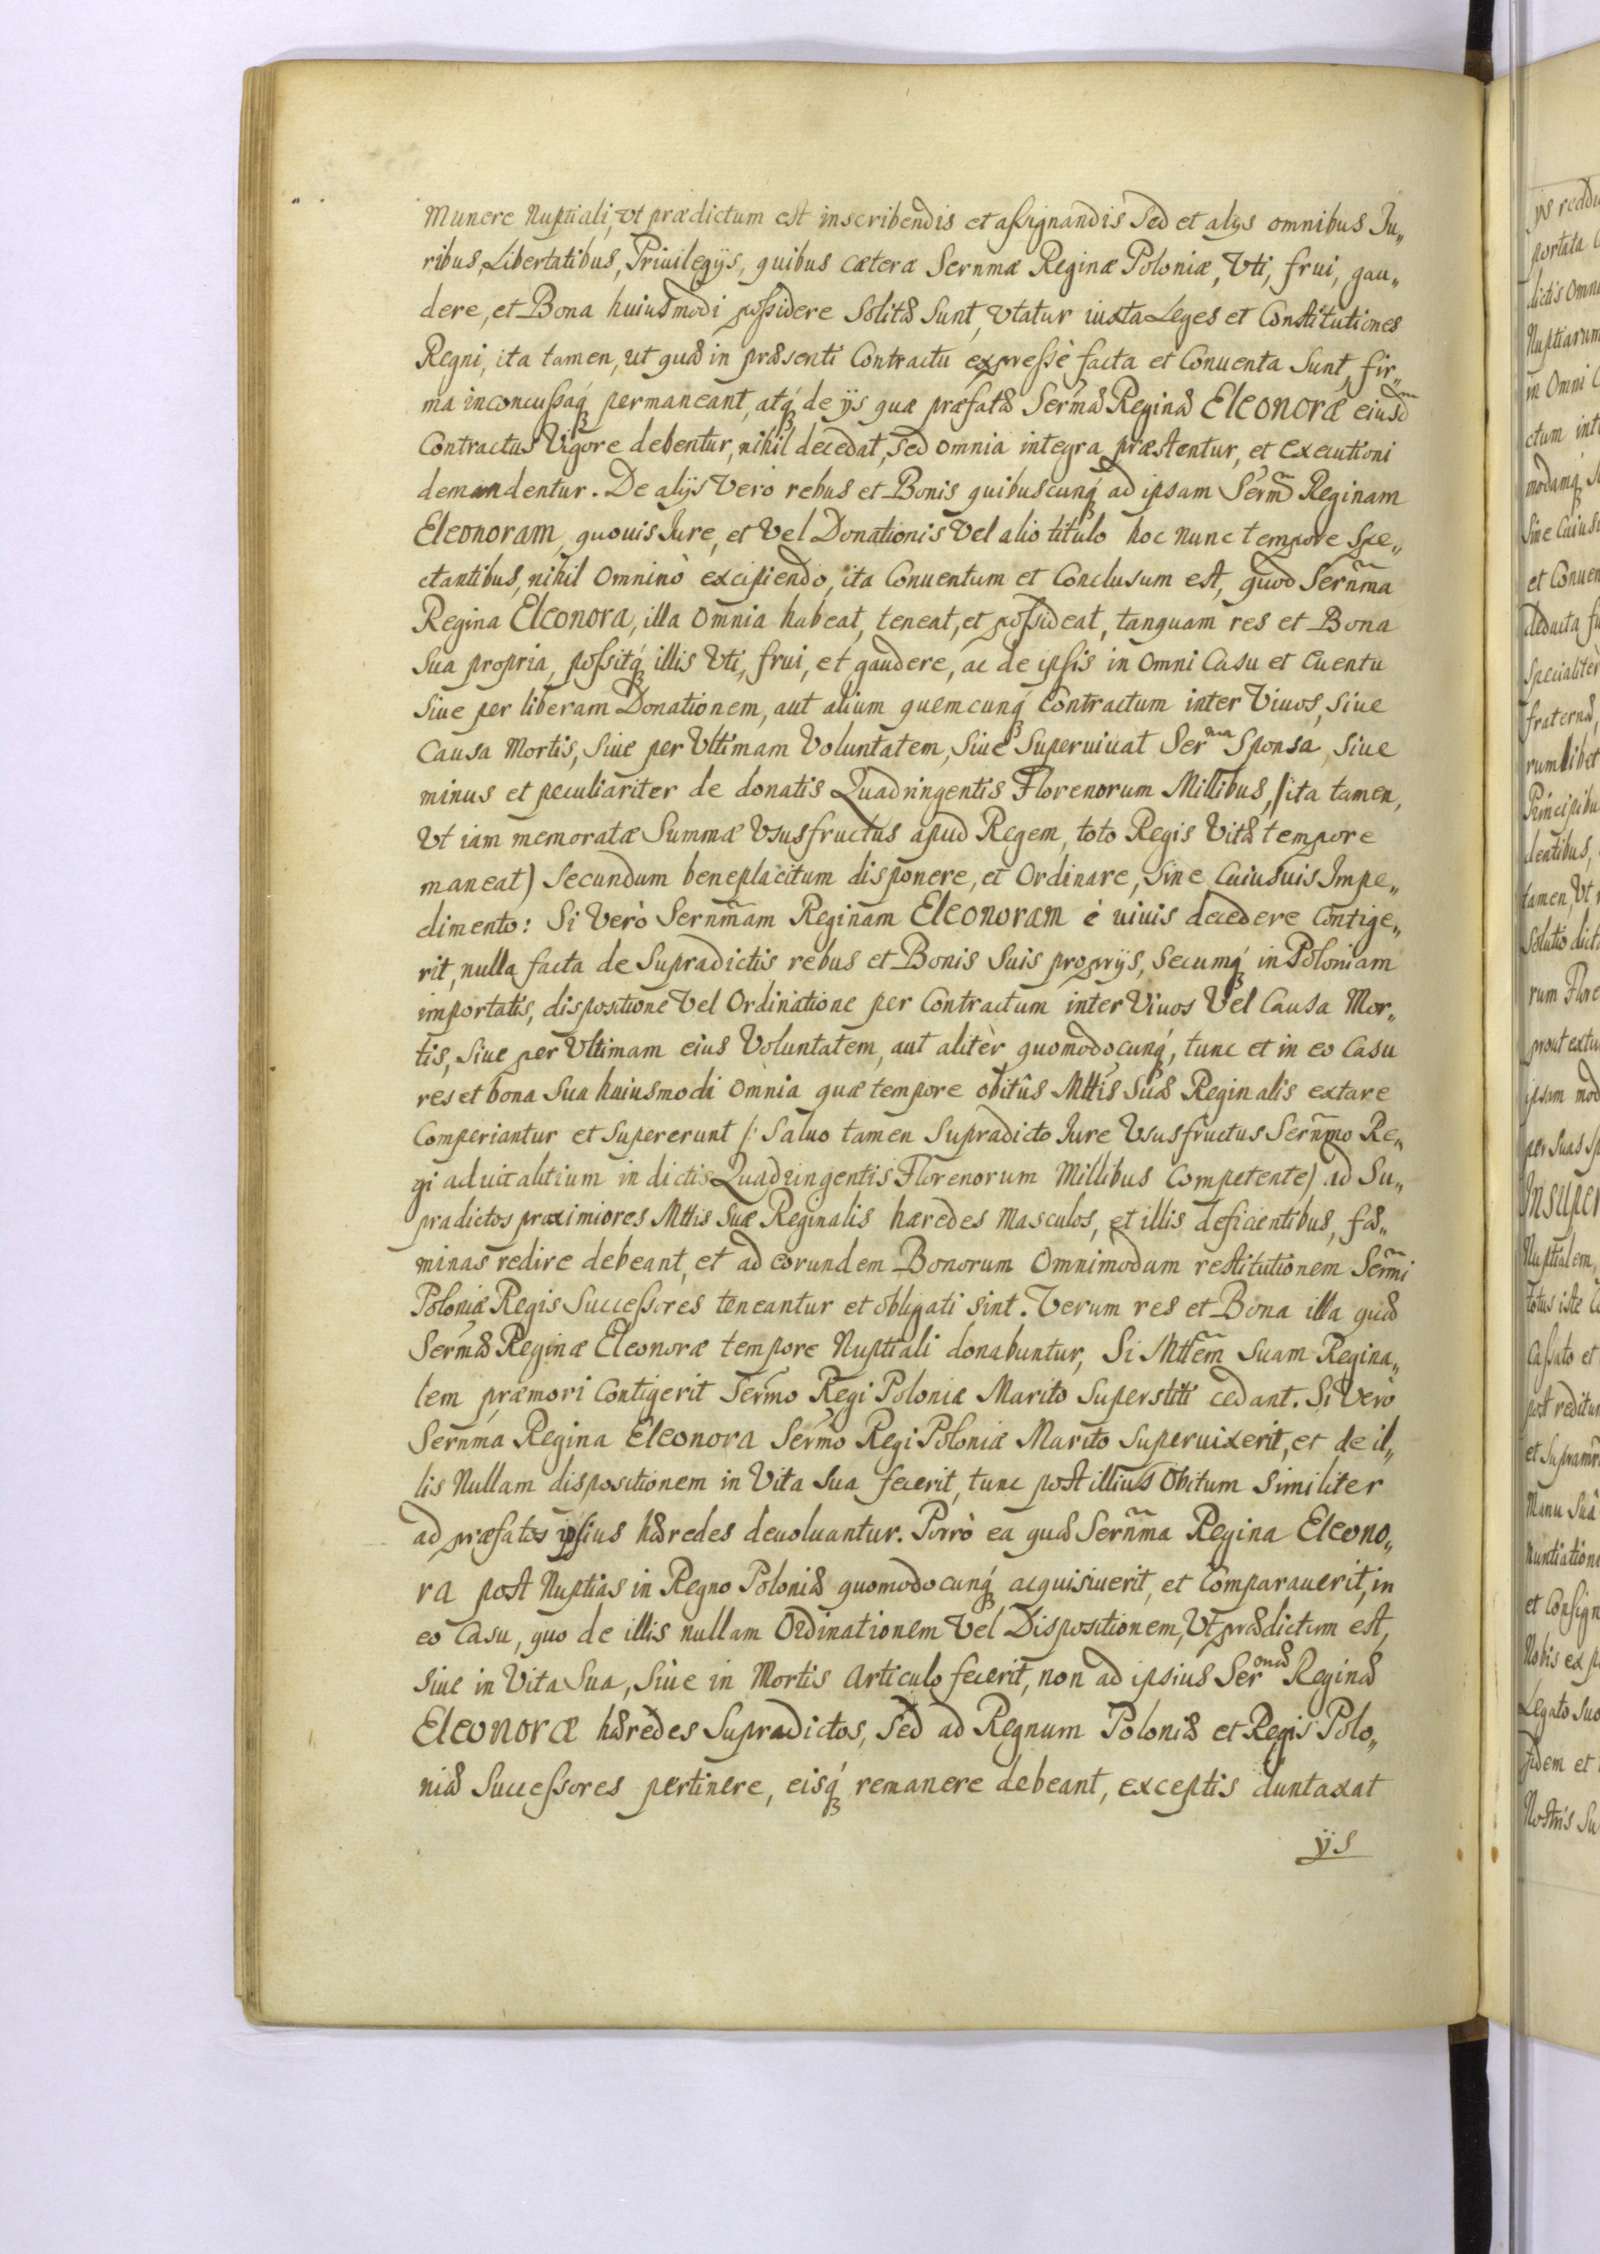 Munere Nuptiali, vt prædictum est inscribendis et assignandis sed et alijs omnibus Ju„
ribus, Libertatibus, Priuilegijs, quibus cæteræ Sernmæ Reginæ Poloniæ, Vti, frui, gau„
dere, et Bona huiusmodi possidere Solitæ Sunt, vtatur iuxta Leges et Constitutiones
Regni, ita tamen, ut quæ in præsenti Contractu expressè facta et Conuenta Sunt, fir„
ma inconcussaq́ permaneant, atq́ de ijs quæ præfatæ Serm̃æ Reginæ Eleonoræ eiusd̃m
Contractus Vigore debentur, nihil decedat, sed omnia integra præstentur, et executioni
demandentur. De alijs Verò rebus et Bonis quibuscunq́ ad ipsam Serm̃ Reginam
Eleonoram, quouis Jure, et Vel Donationis Vel alio titulo hoc nunc tempore Spe„
ctantibus, nihil Omninò excipiendo, ita Conuentum et Conclusum est, quod Sern̄ma
Regina Eleonora, illa Omnia habeat, teneat, et possideat, tanquam res et Bona
Sua propria, possitq́ illis Vti, frui, et gaudere, ac de ipsis in Omni Casu et Euentu
Siue per liberam Donationem, aut alium quemcunq́ Contractum inter Viuos, Siue
Causa Mortis, Siue per Vltimam Voluntatem, Siue Superuiuat Ser ma Sponsa, Siue
minus et peculiariter de donatis Quadringentis Florenorum Millibus, /ita tamen,
Vt iam memoratæ Summæ Vsusfructus apud Regem, toto Regis Vitæ tempore
maneat) Secundum beneplacitum disponere, et Ordinare, Sine Cuiusuis Impe„
dimento: Si Verò Sern̄mam Reginam Eleonoram è uiuis decedere Contige„
rit, nulla facta de Supradictis rebus et Bonis Suis proprijs, Secumq́ in Poloniam
importatis, dispositione Vel Ordinatione per Contractum inter Viuos Vel Causa Mor„
tis, Siue per Vltimam eius Voluntatem, aut alitèr quomodocunq́, tunc et in eo Casu
res et bona Sua huiusmodi Omnia quæ tempore obitûs Mttis Suæ Reginalis extare
Comperiantur et Supererunt /: Saluo tamen Supradicto Jure Vsusfructus Sern̄mo Re„
gi aduitalitium in dictis Quadringentis Florenorum Millibus Competente) ad Su„
pradictos proximiores Mttis Suæ Reginalis hæredes Masculos, et illis deficientibus, fæ„
minas redire debeant, et ad eorundem Bonorum Omnimodam restitutionem Serm̃i
Poloniæ Regis Successores teneantur et obligati sint. Verum res et Bona illa quæ
Serm̃æ Reginæ Eleonoræ tempore Nuptiali donabuntur, Si Mttem̃ Suam Regina„
lem præmori Contigerit Serm̃o Regi Poloniæ Marito Superstiti cedant. Si Verò
Sernm̃a Regina Eleonora Serm̃o Regi Poloniæ Marito Superuixerit, et de il„
lis Nullam dispositionem in Vita Sua fecerit, tunc post illius Obitum Similiter
ad præfatos ipsius hæredes deuoluantur. Porrò ea quæ Sern̄ma Regina Eleono„
ra post Nuptias in Regno Poloniæ quomodocunq́ acquisiuerit, et Comparauerit, in
eo Casu, quo de illis nullam Ordinationem Vel Dispositionem, Vt prædictum est,
siue in Vita Sua, Siue in Mortis Articulo fecerit, non ad ipsius Ser mæ Reginæ
Eleonoræ hæredes Supradictos, Sed ad Regnum Poloniæ et Regis Polo„
niæ Successores pertinere, eisq́ remanere debeant, exceptis duntaxat
ijs